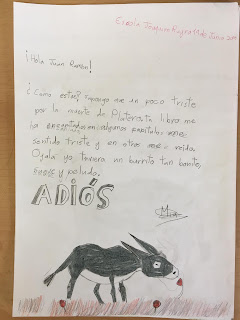 Escola Joaquim Ruyra 11 de Junio
¡Hola Juan Ramón!
¿Cómo estas? Supongo que un poco triste
por la muerte de Platero. tu libro me
ha encantado en algunos capítulos me
sentido triste y en otros reida
Ojala yo tuviera un burrito tan bonito,
suave y peludo.
ADIÓS